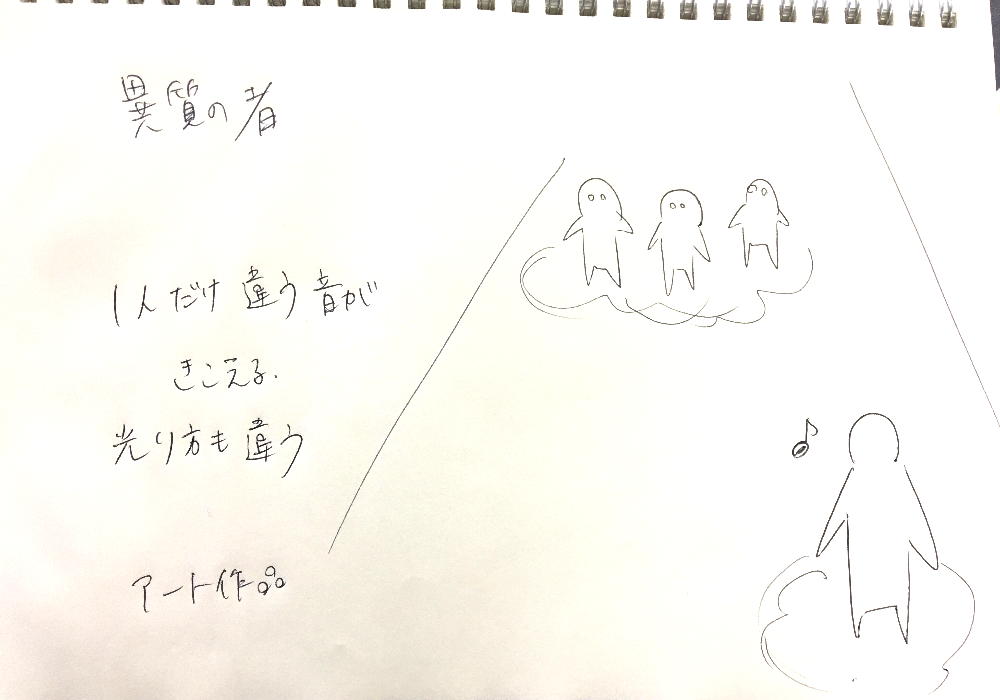 異質の者
1人だけ違う音が
きこえる.
光り方も違う
アート作品